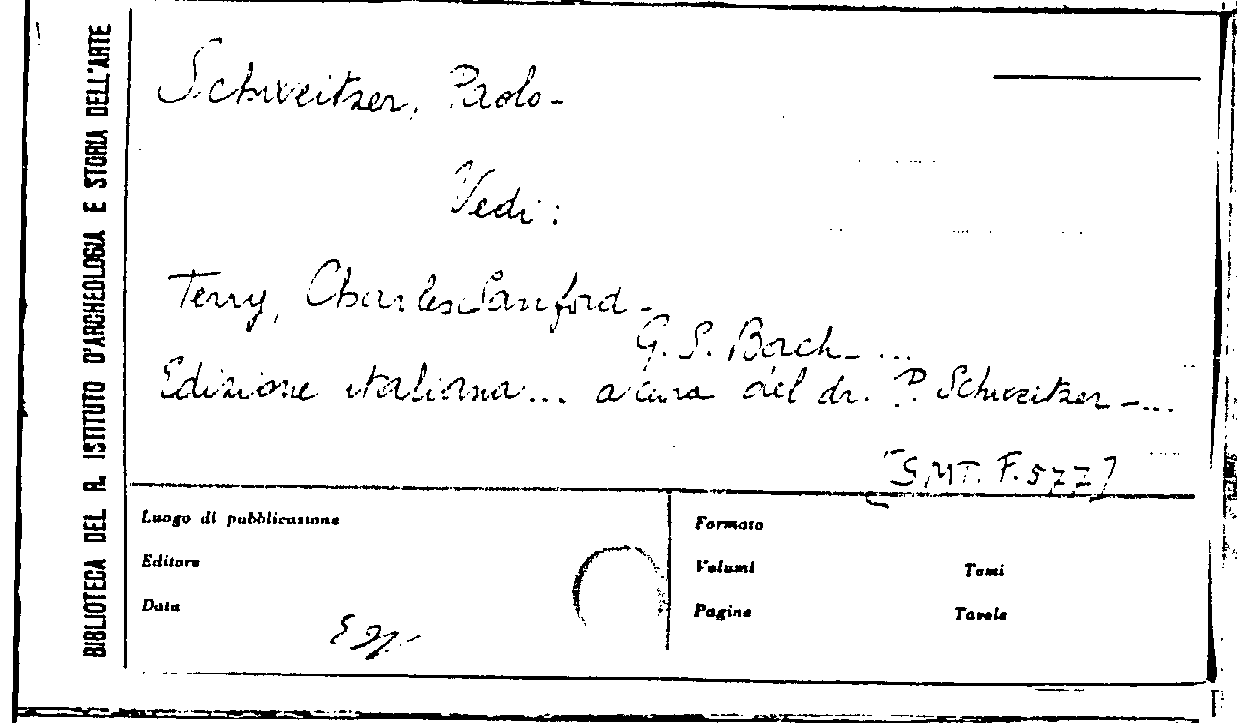 BIBLIOTECA DEL R. ISTITUTO D'ARCHEOLOGIA E STORIA DELL'ARTE
Schweitzer, Paolo-
Vedi:
Terry, Charles Sanford-
G. S. Bach-...
Edizione italiana... a cura del dr. P. Schweitzer-...
[S.MT. F. 577]
Luogo di pubblicazione
Editore
Data
Formato
Volumi Tomi
Pagine Tavole